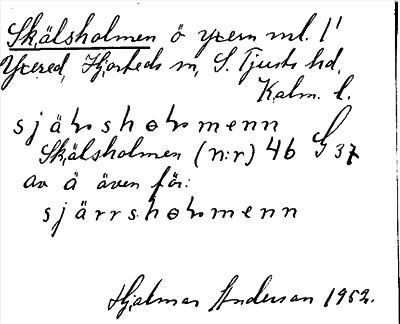 Skälsholmen ö ytern ml. 1'
Ytered, Hjorteds sn, S. Tjusts hd,
Kalm. l.
sjäɽsholmenn
Skälsholmen (n:r) 46 G 37
av å även för:
sjärrsholmenn
Hjalmar Anderson 1952.